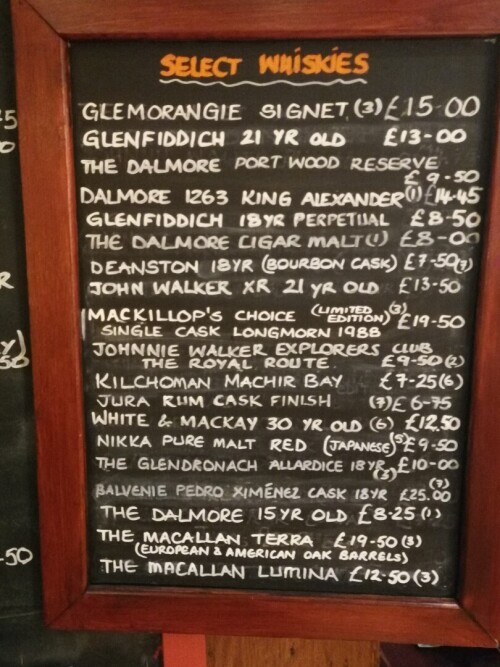 SELECT WHISKIES
GLEMORANGIE SIGNET (3) £15-00
GLENFIDDICH 21 YR OLD £13-00
THE DALMORE PORT WOOD RESERVE
£9-50
DALMORE 1263 KING ALEXANDER (1) £14-45
GLENFIDDICH 18YR PERPETUAL £8-50
THE DALMORE CIGAR MALT (1) £8-00
DEANSTON 18YR (BOURBON CASK) £7-50(3)
JOHN WALKER XR 21 YR OLD £13-50
MACKILLOP'S CHOICE (LIMITED EDITION) (3) £19-50
SINGLE CASK LONGMORN 1988
JOHNNIE WALKER EXPLORERS CLUB
THE ROYAL ROUTE. £9-50 (2)
KILCHOMAN MACHIR BAY £7-25(6)
JURA RUM CASK FINISH (7) £6-75
WHITE & MACKAY 30 YR OLD (6) £12,50
NIKKA PURE MALT RED (JAPANESE) (5) £9-50
THE GLENDRONACH ALLARDICE 18YR (3) £10-00
BALVENIE PEDRO XIMÉNEZ CASK 18YR £25.00 (3)
THE DALMORE 15YR OLD £8-25 (1)
THE MACALLAN TERRA £19-50 (3)
(EUROPEAN & AMERICAN OAK BARRELS)
THE MACALLAN LUMINA £12-50 (3)
-50